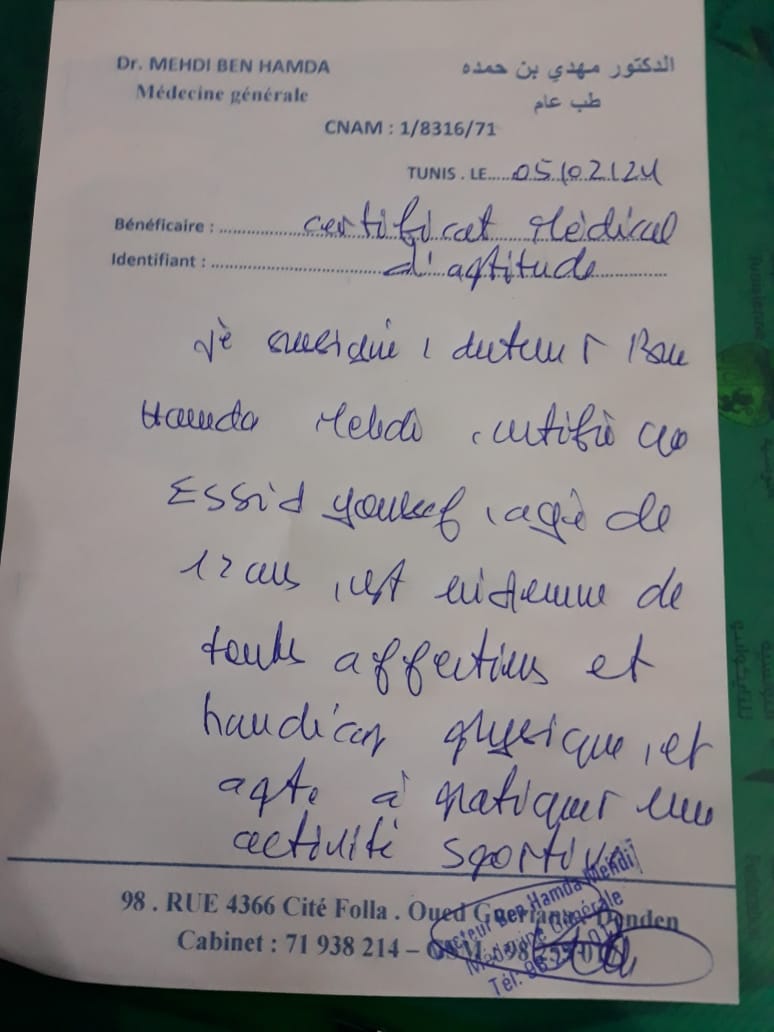 Dr. MEHDI BEN HAMDA
الدكتور مهدي بن حمده
Médecine générale
طب عام
CNAM : 1/8316/71
TUNIS . LE 05/02/24
Bénéficaire : certificat Médical
Identifiant : d'aptitude
Je soussigné, docteur Ben
Hamda Mehdi, certifie que
Essid Youssef, agé de
12 ans, est indemne de
toutes affections et
handicap physique, et
apte à pratiquer une
activité sportive
98 . RUE 4366 Cité Folla . Oued Gueriana . Denden
Cabinet : 71 938 214 – GSM : 98
Docteur Ben Hamda Mehdi
Médecine Générale
Tél: 98